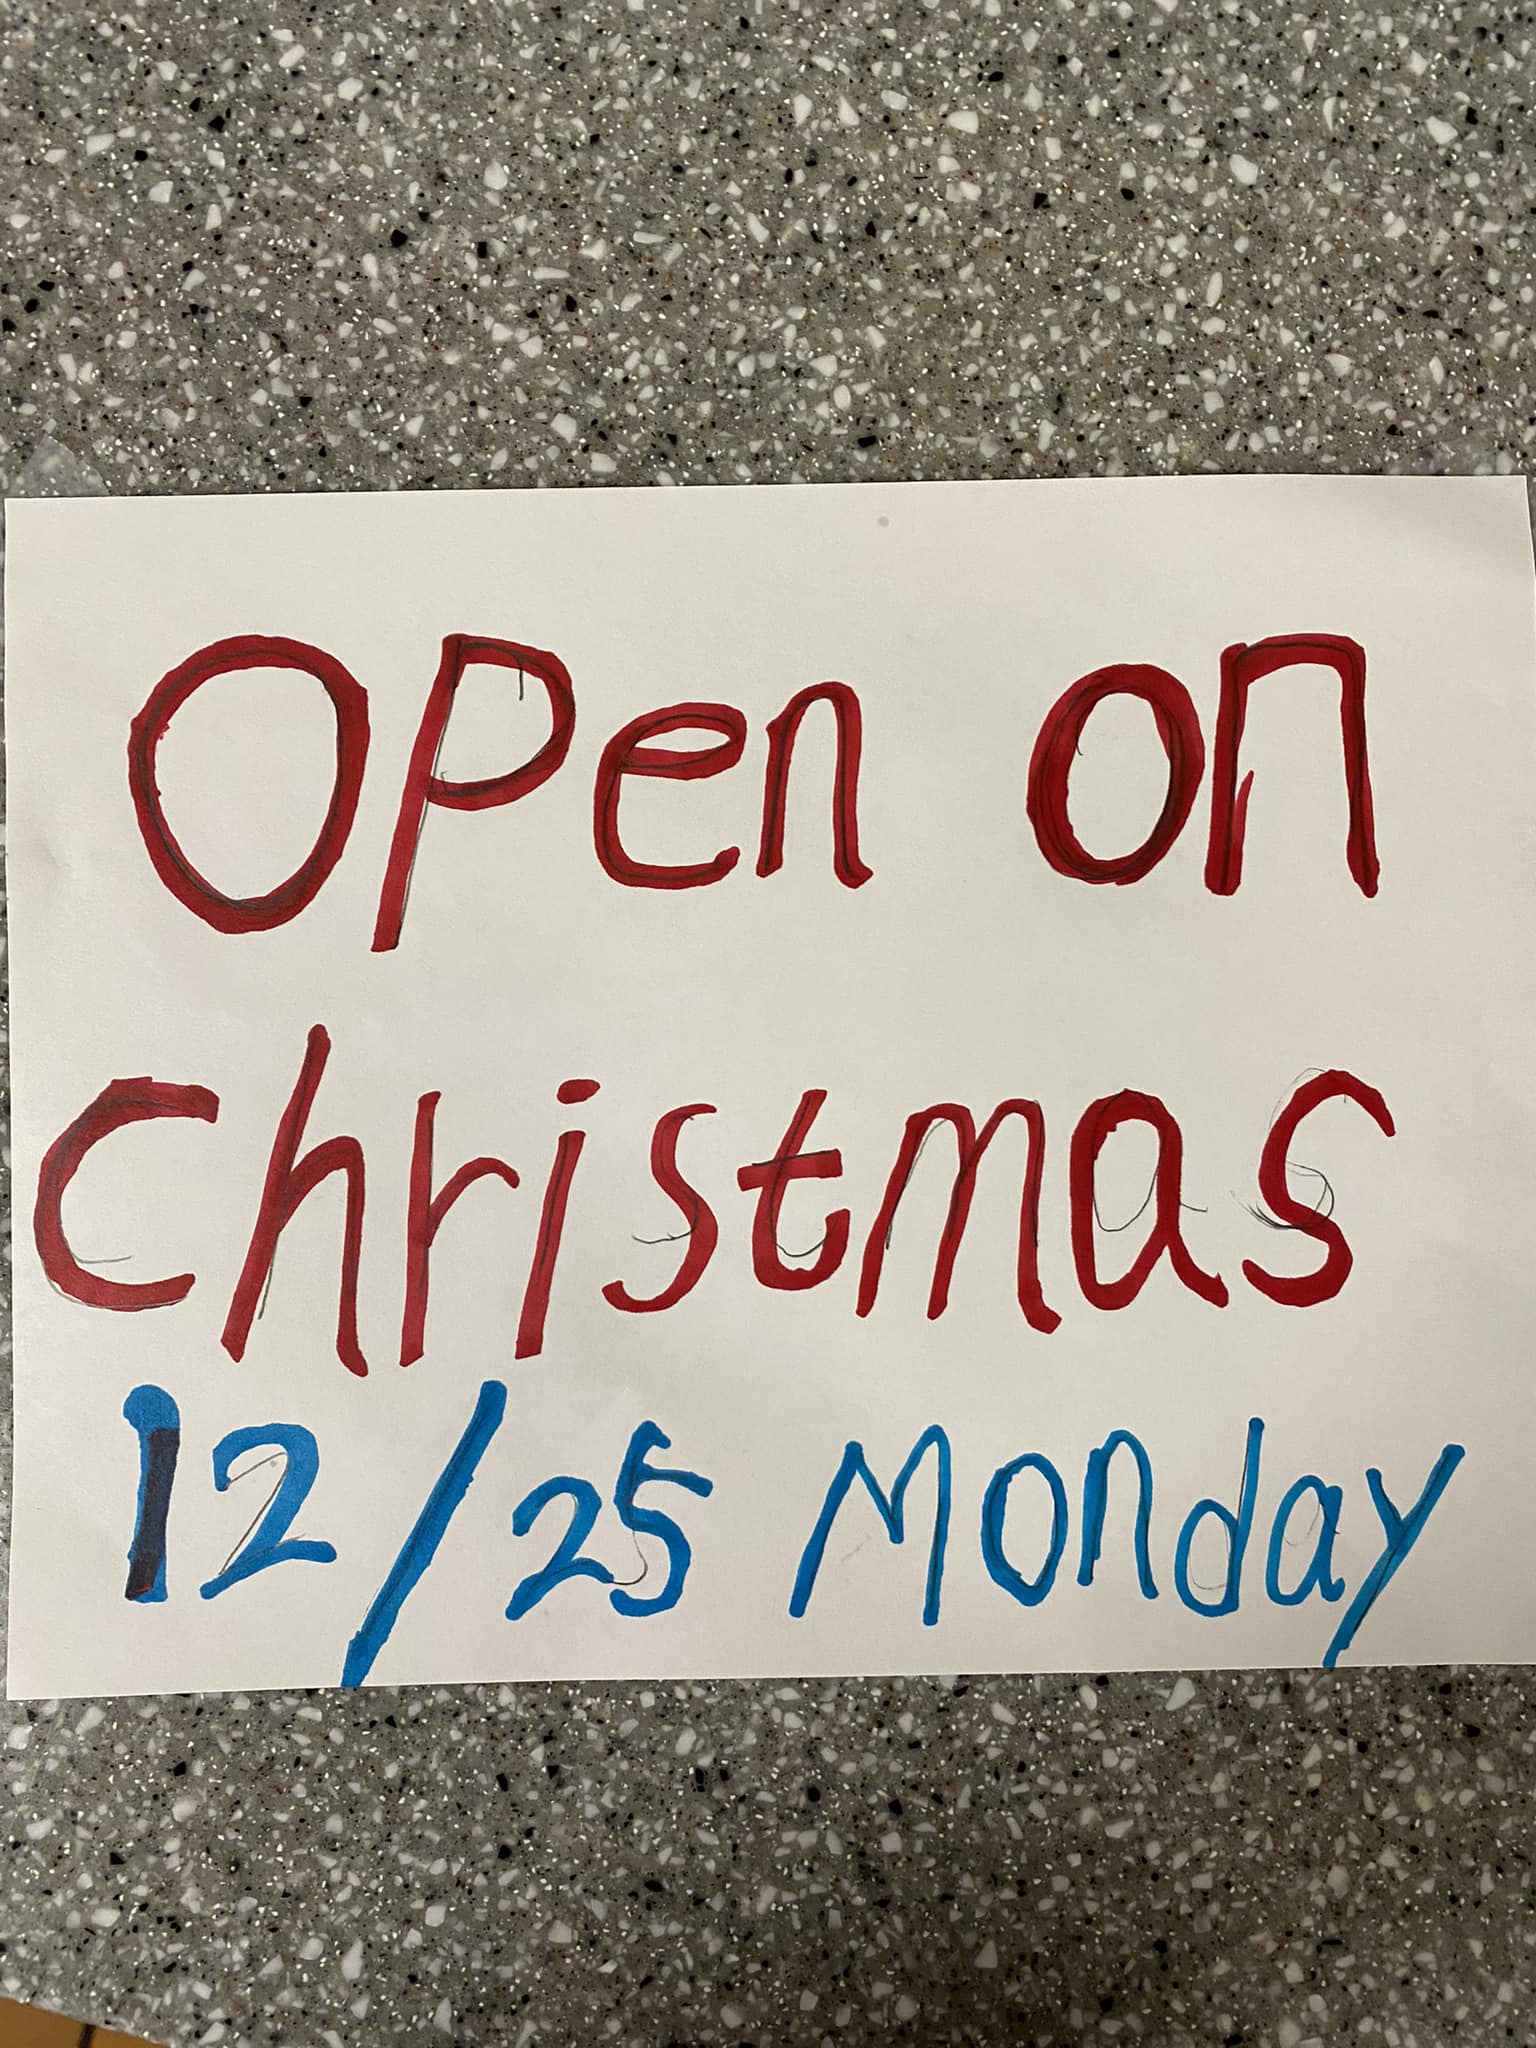 Open on
Christmas
12/25 Monday